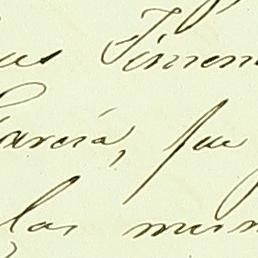 us Jimen
García, fue
las mism